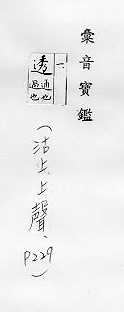 彙音寶鑑
一
透
通也
過也
(沽上上聲、P229)